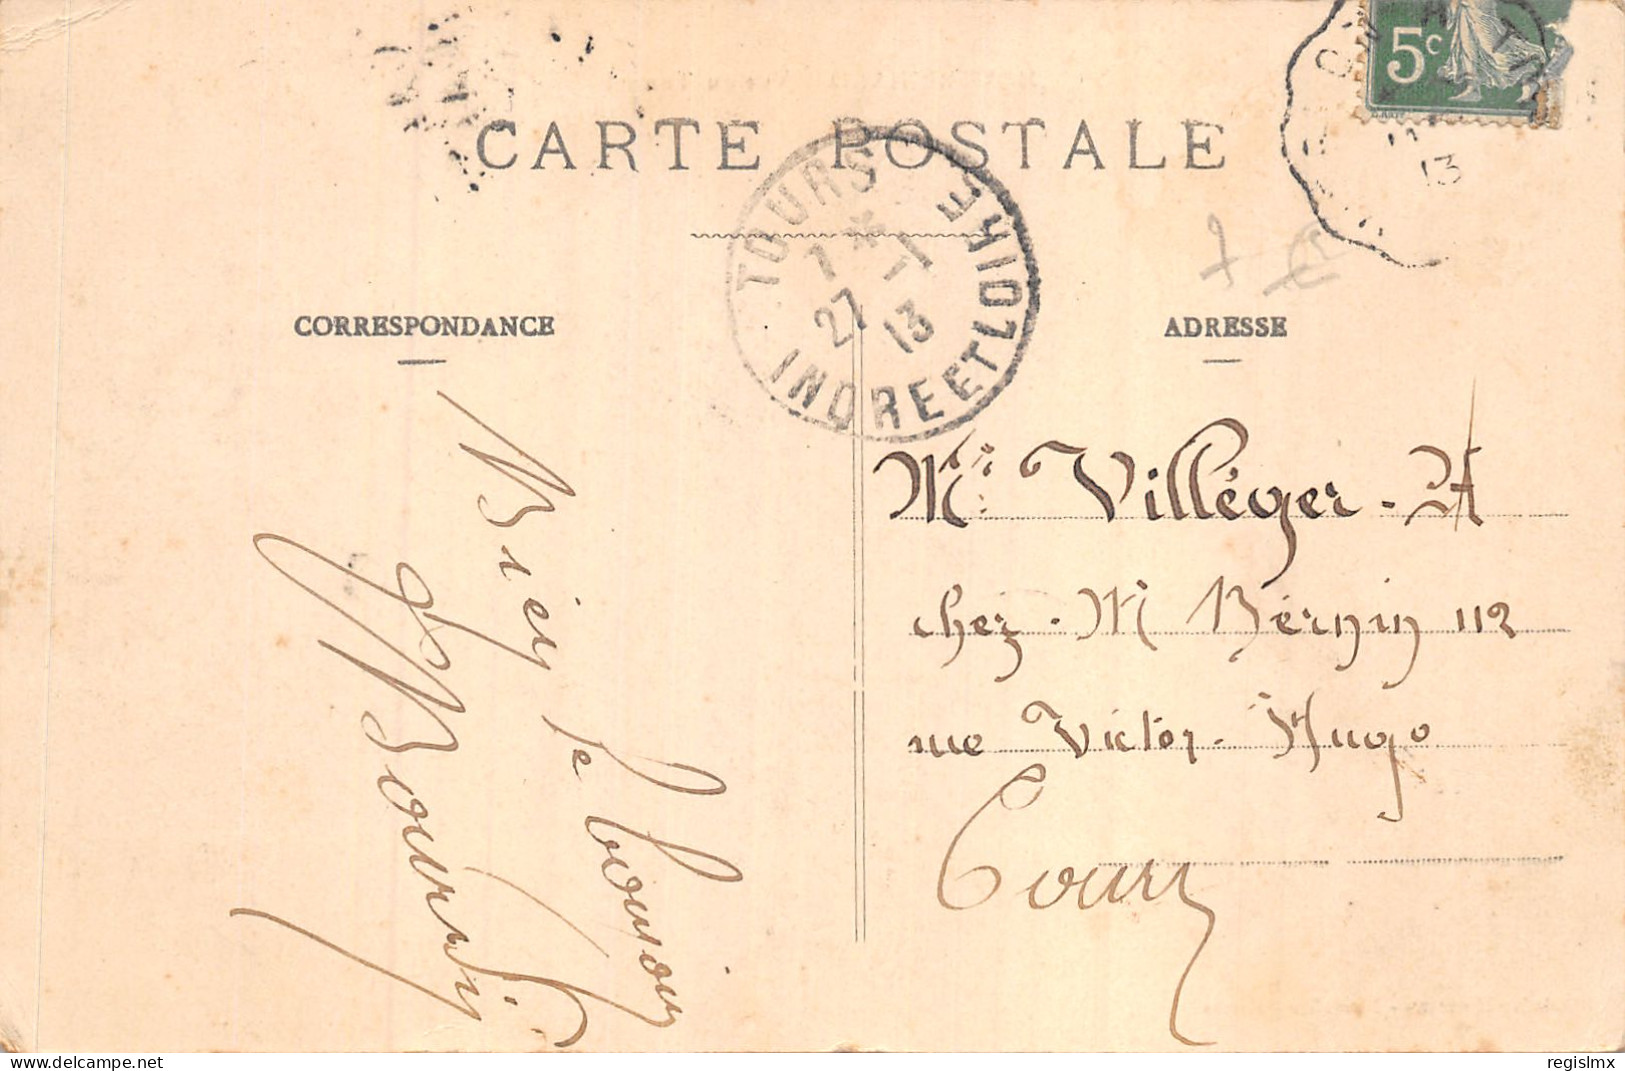 CARTE POSTALE
5c
13
TOURS
7 * 27 -1 13
INDRE ET LOIRE
CORRESPONDANCE
ADRESSE
Bien le bonjour
Bourdin
Mr Villéger - A
chez - M Bernin 112
rue Victor - Hugo
Tours
regislmx